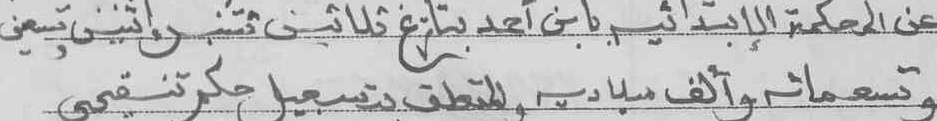 عن المحكمة الإبتدائية بابن أحمد بتاريخ ثلاثين شتنبر واثنين وتسعين
وتسعمائة وألف ميلادية والمتعلق بتسجيل حكم تنقيحي